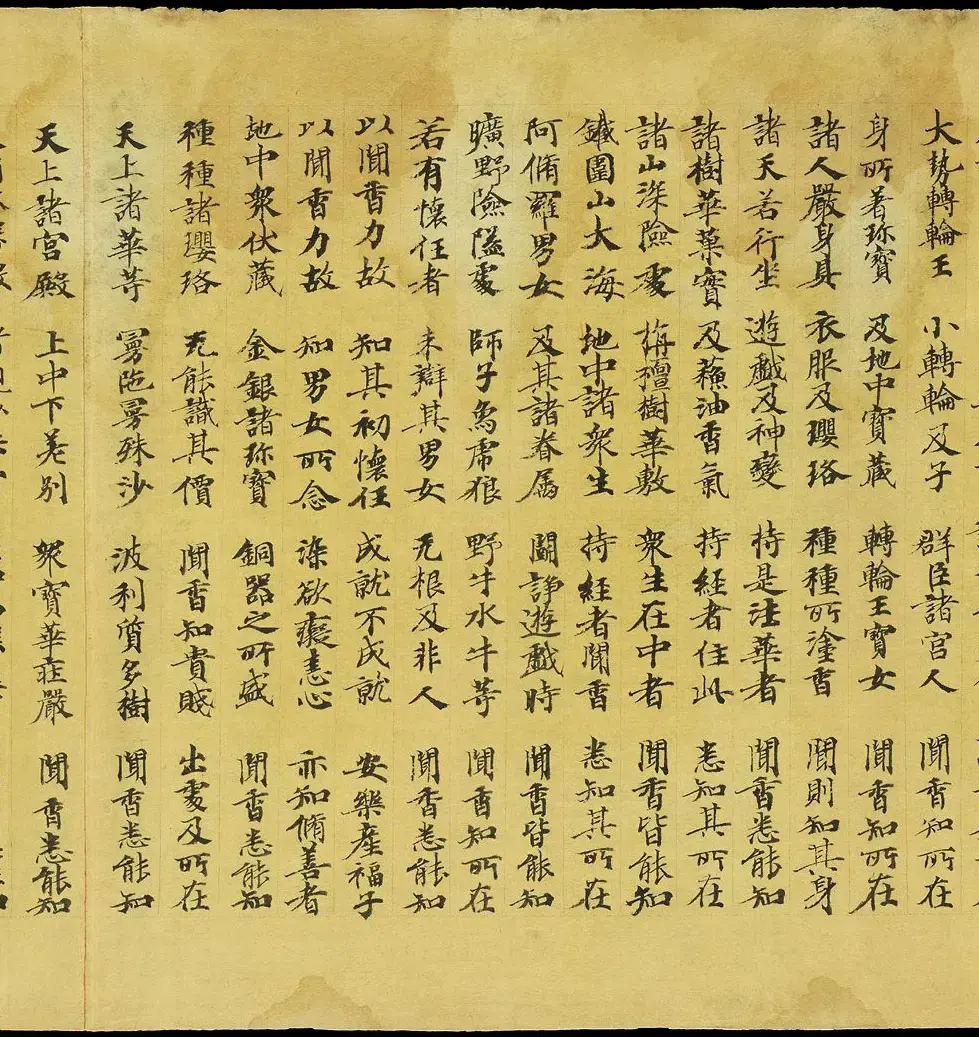 大勢轉輪王 小轉輪及子 群臣諸宮人 聞香知所在
身所著珎寶 及地中寶藏 轉輪王寶女 聞香知所在
諸人嚴身具 衣服及瓔珞 種種所塗香 聞則知其身
諸天若行坐 遊戲及神變 持是法華者 聞香悉能知
諸樹華菓實 及蘇油香氣 持經者住此 悉知其所在
諸山深險處 栴檀樹華敷 眾生在中者 聞香皆能知
鐵圍山大海 地中諸眾生 持經者聞香 悉知其所在
阿脩羅男女 及其諸眷属 鬪諍遊戲時 聞香皆能知
曠野險隘處 師子象虎狼 野牛水牛等 聞香知所在
若有懷任者 未辯其男女 无根及非人 聞香悉能知
以聞香力故 知其初懷任 成就不成就 安樂產福子
以聞香力故 知男女所念 染欲癡恚心 亦知脩善者
地中眾伏藏 金銀諸珎寶 銅器之所盛 聞香悉能知
種種諸瓔珞 无能識其價 聞香知貴賤 出處及所在
天上諸華等 曼陀曼殊沙 波利質多樹 聞香悉能知
天上諸宮殿 上中下差别 眾寶華莊嚴 聞香悉能知